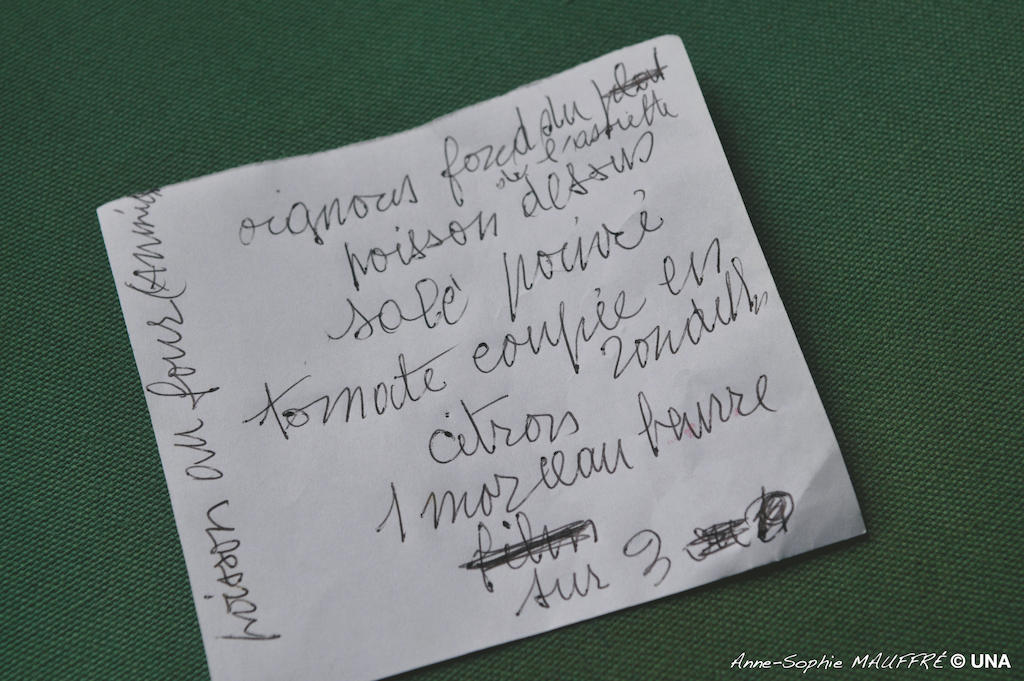 poisson au four (Annie
oignons fond du plat
de l'assiette
poisson dessus
salé poivré
tomate coupée en
rondelles
citron
1 morceau beurre
film
sur 3
Anne-Sophie MAUFFRÉ © UNA